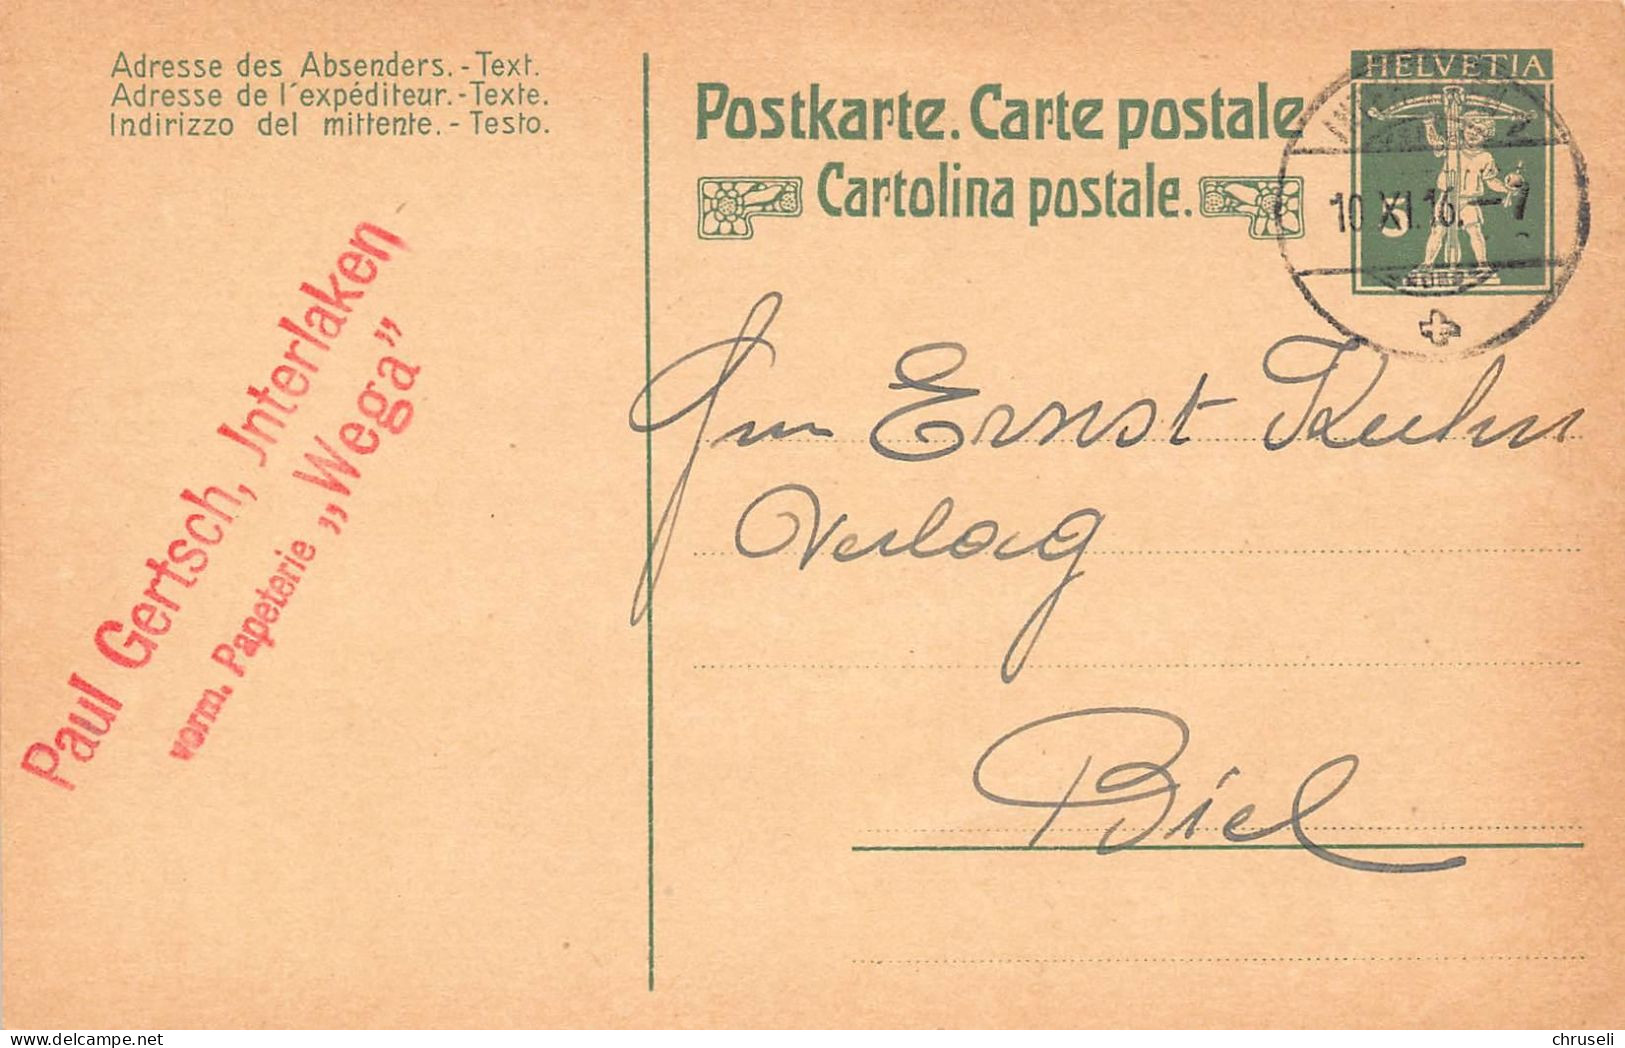 Adresse des Absenders.-Text.
Adresse de l'expéditeur.-Texte.
Indirizzo del mittente.-Testo.
Postkarte. Carte postale
Cartolina postale.
HELVETIA
5
10 XI.16.-7
Paul Gertsch, Interlaken
vorm. Papeterie „Wega”
Ernst Kuhn
Verlag
Biel
chruseli